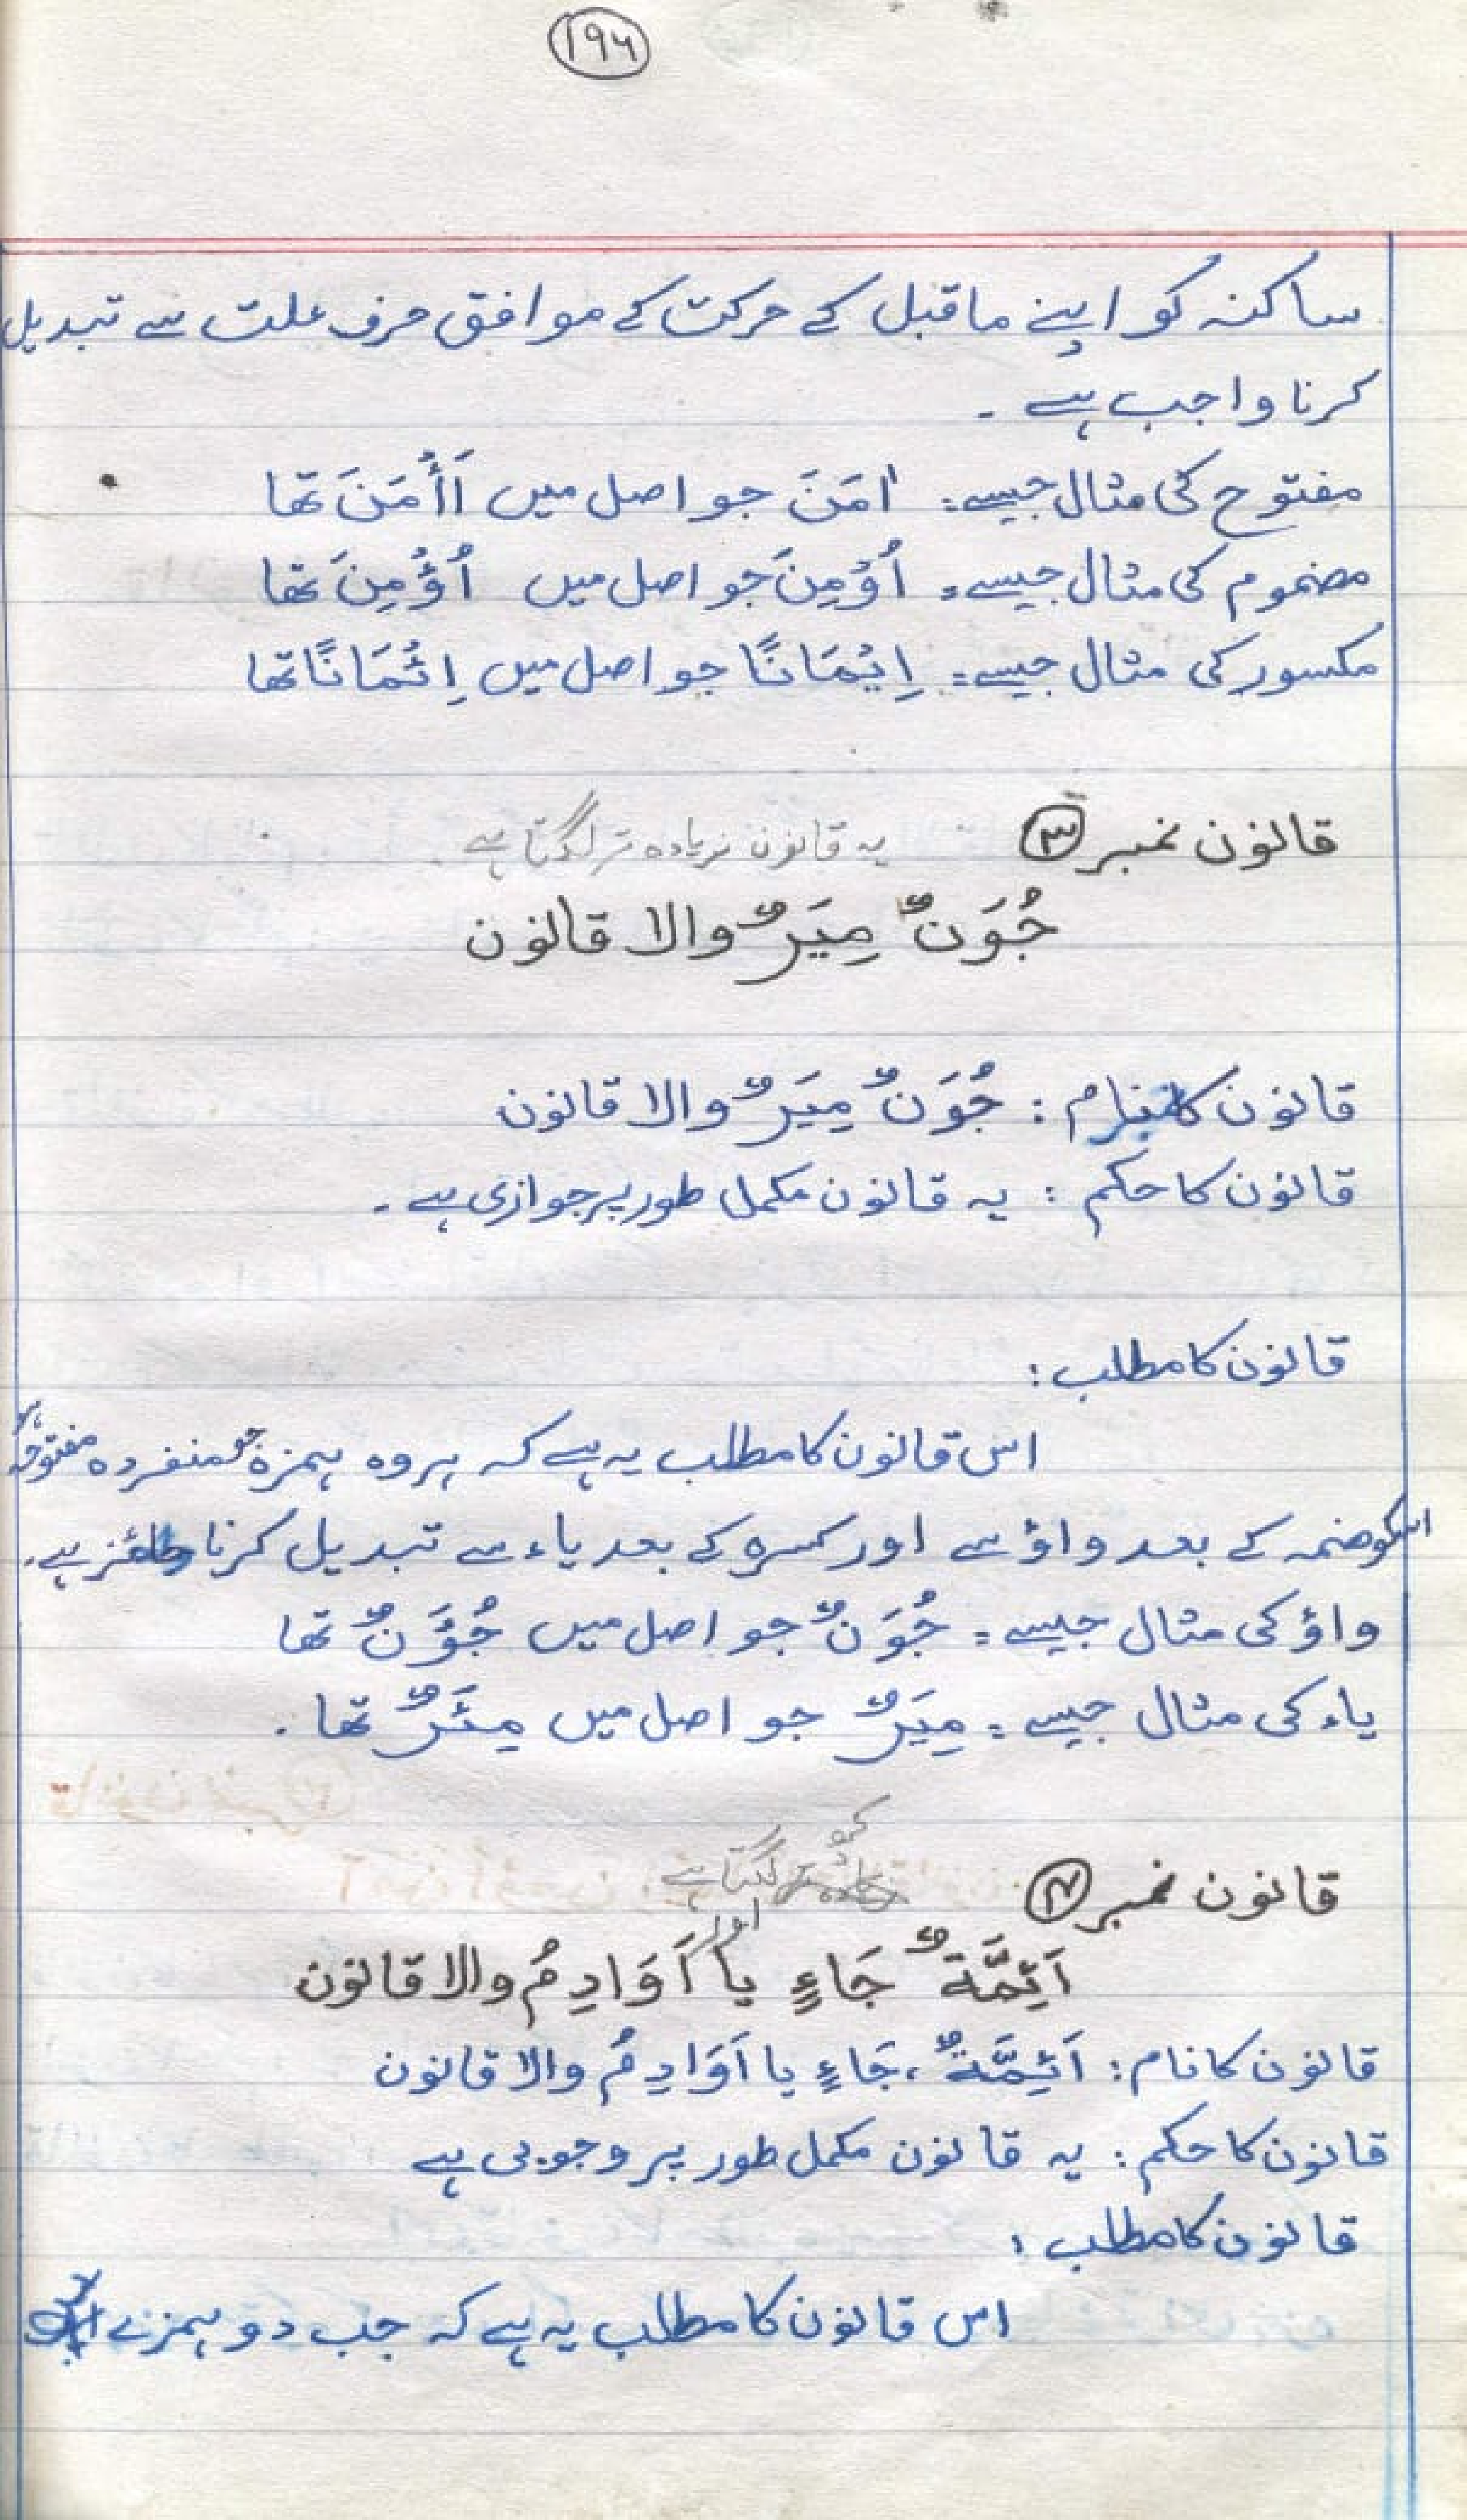 ۱۹۶
ساکنہ کو اپنے ماقبل کے حرکت کے موافق حرف علت سے تبدیل
کرنا واجب ہے ۔
مفتوح کی مثال جیسے: اٰمَنَ جو اصل میں أَأْمَنَ تھا
مضموم کی مثال جیسے: اُوْمِنَ جو اصل میں اُؤْمِنَ تھا
مکسور کی مثال جیسے: اِیْمَانًا جو اصل میں اِئْمَانًا تھا
قانون نمبر ۳ یہ قانون زیادہ تر لگتا ہے
جُوَنٌ مِیَرٌ والا قانون
قانون کا نام : جُوَنٌ مِیَرٌ والا قانون
قانون کا حکم : یہ قانون مکمل طور پر جوازی ہے ۔
قانون کا مطلب :
اس قانون کا مطلب یہ ہے کہ ہر وہ ہمزہ جو منفردہ مفتوحہ ہو
اسکو ضمہ کے بعد واؤ سے اور کسرہ کے بعد یاء سے تبدیل کرنا جائز ہے ۔
واؤ کی مثال جیسے : جُوَنٌ جو اصل میں جُؤَنٌ تھا
یاء کی مثال جیسے : مِیَرٌ جو اصل میں مِئَرٌ تھا ۔
قانون نمبر ۴ کم لگتا ہے
اَئِمَّةٌ جَاءٍ یا اور اَوَادِمُ والا قانون
قانون کا نام : اَئِمَّةٌ ، جَاءٍ یا اَوَادِمُ والا قانون
قانون کا حکم : یہ قانون مکمل طور پر وجوبی ہے
قانون کا مطلب :
اس قانون کا مطلب یہ ہے کہ جب دو ہمزے